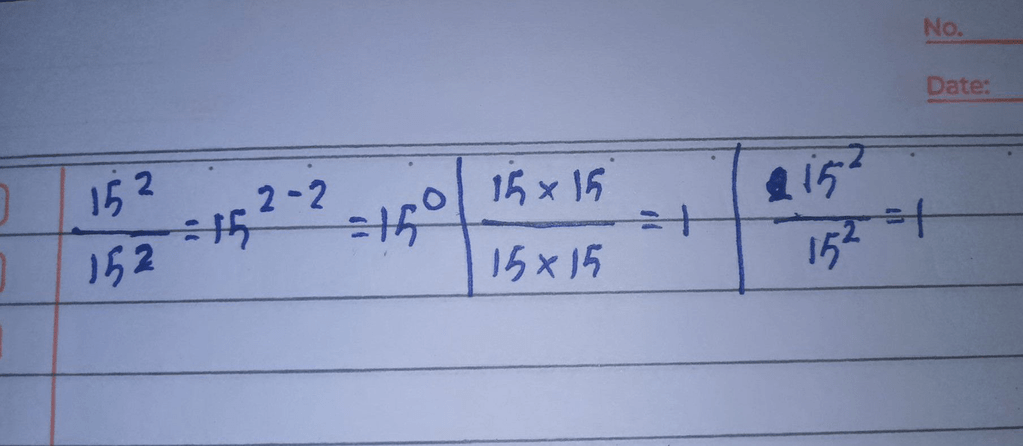 No.
Date:
15²/15² = 15²⁻² = 15⁰ | 15 × 15 / 15 × 15 = 1 | 15²/15² = 1